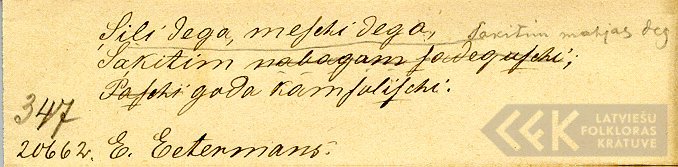 Sili dega, meschi dega, Sakitim mahjas deg
Sakitim nabagam sadeguschi;
Paschi goda kamsolischi.
347
20662. E. Eetermans.
LATVIEŠU
FOLKLORAS
KRATUVE